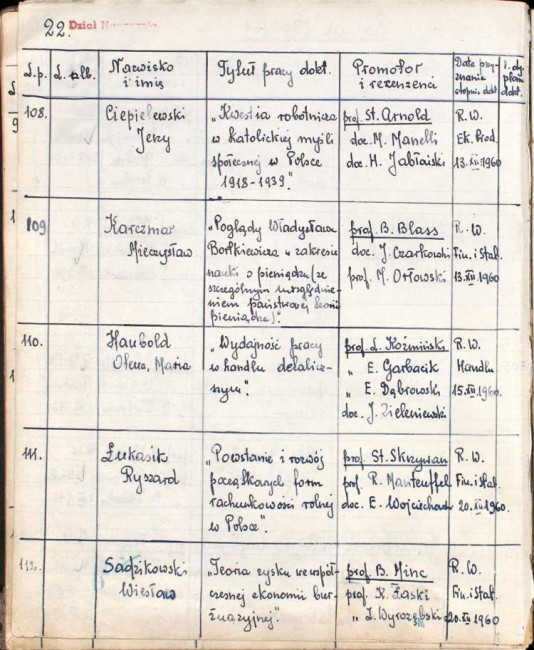 22. Dział Nauczania
L.p.
L. alb.
Nazwisko
i imię
Tytuł pracy dokt.
Promotor
i recenzenci
Data przy-
znania
stopnia dokt.
L. dy-
plomu
dokt.
108.
Ciepielewski
Jerzy
„Kwestia robotnicza
w katolickiej myśli
społecznej w Polsce
1918-1939".
prof. St. Arnold
doc. M. Manelli
doc. H. Jabłoński
R. W.
Ek. Prod.
13.XII.1960
109
Karczmar
Mieczysław
„Poglądy Władysława
Bortkiewicza w zakresie
nauki o pieniądzu (ze
szczególnym uwzględnie-
niem państwowej teorii
pieniądza)".
prof. B. Blass
doc. J. Czarkowski
prof. M. Orłowski
R. W.
Fin. i Stat.
13.XII.1960
110.
Haubold
Olena, Maria
„Wydajność pracy
w handlu detalicz-
nym".
prof. L. Koźmiński
" E. Garbacik
" E. Dąbrowski
doc. J. Zieleniewski
R. W.
Handlu
15.XII.1960.
111.
Łukasik
Ryszard
„Powstanie i rozwój
początkowych form
rachunkowości rolnej
w Polsce".
prof. St. Skrzywan
prof. R. Manteuffel
doc. E. Wojciechow
R. W.
Fin. i Stat.
20.XII.1960.
112.
Sadzikowski
Wiesław
„Teoria zysku we współ-
czesnej ekonomii bur-
żuazyjnej".
prof. B. Minc
prof. K. Łaski
" J. Wyrozębski
R. W.
Fin. i Stat.
20.XII.1960